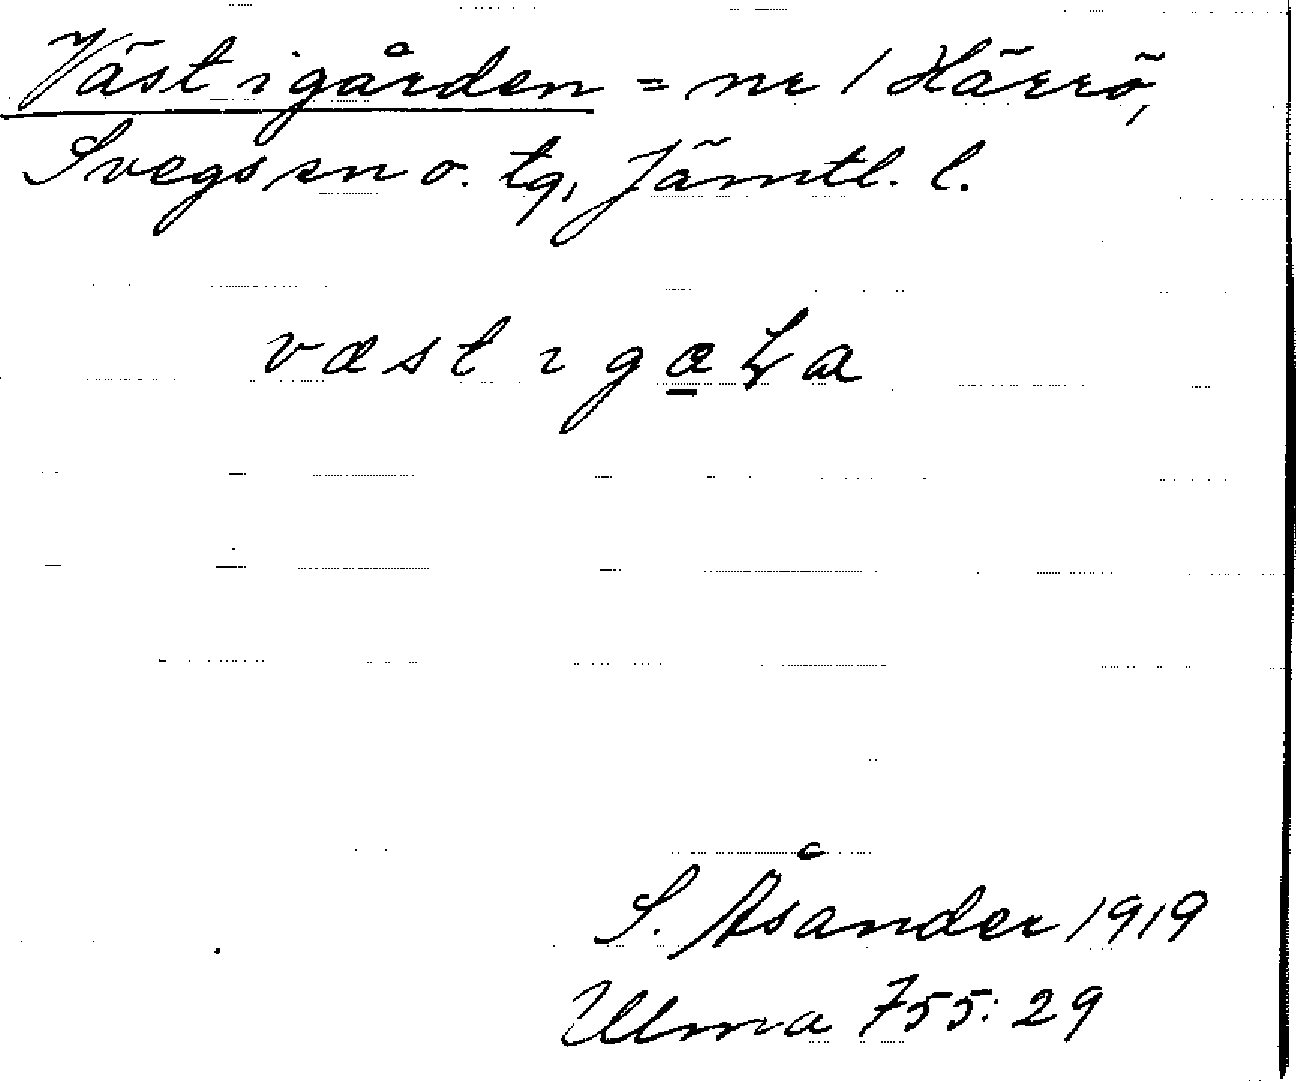 Västigården = nr 1 Härrö,
Svegs sn o. tg, Jämtl. l.
væst ı g
S. Åsander 1919
Ulma 755:29